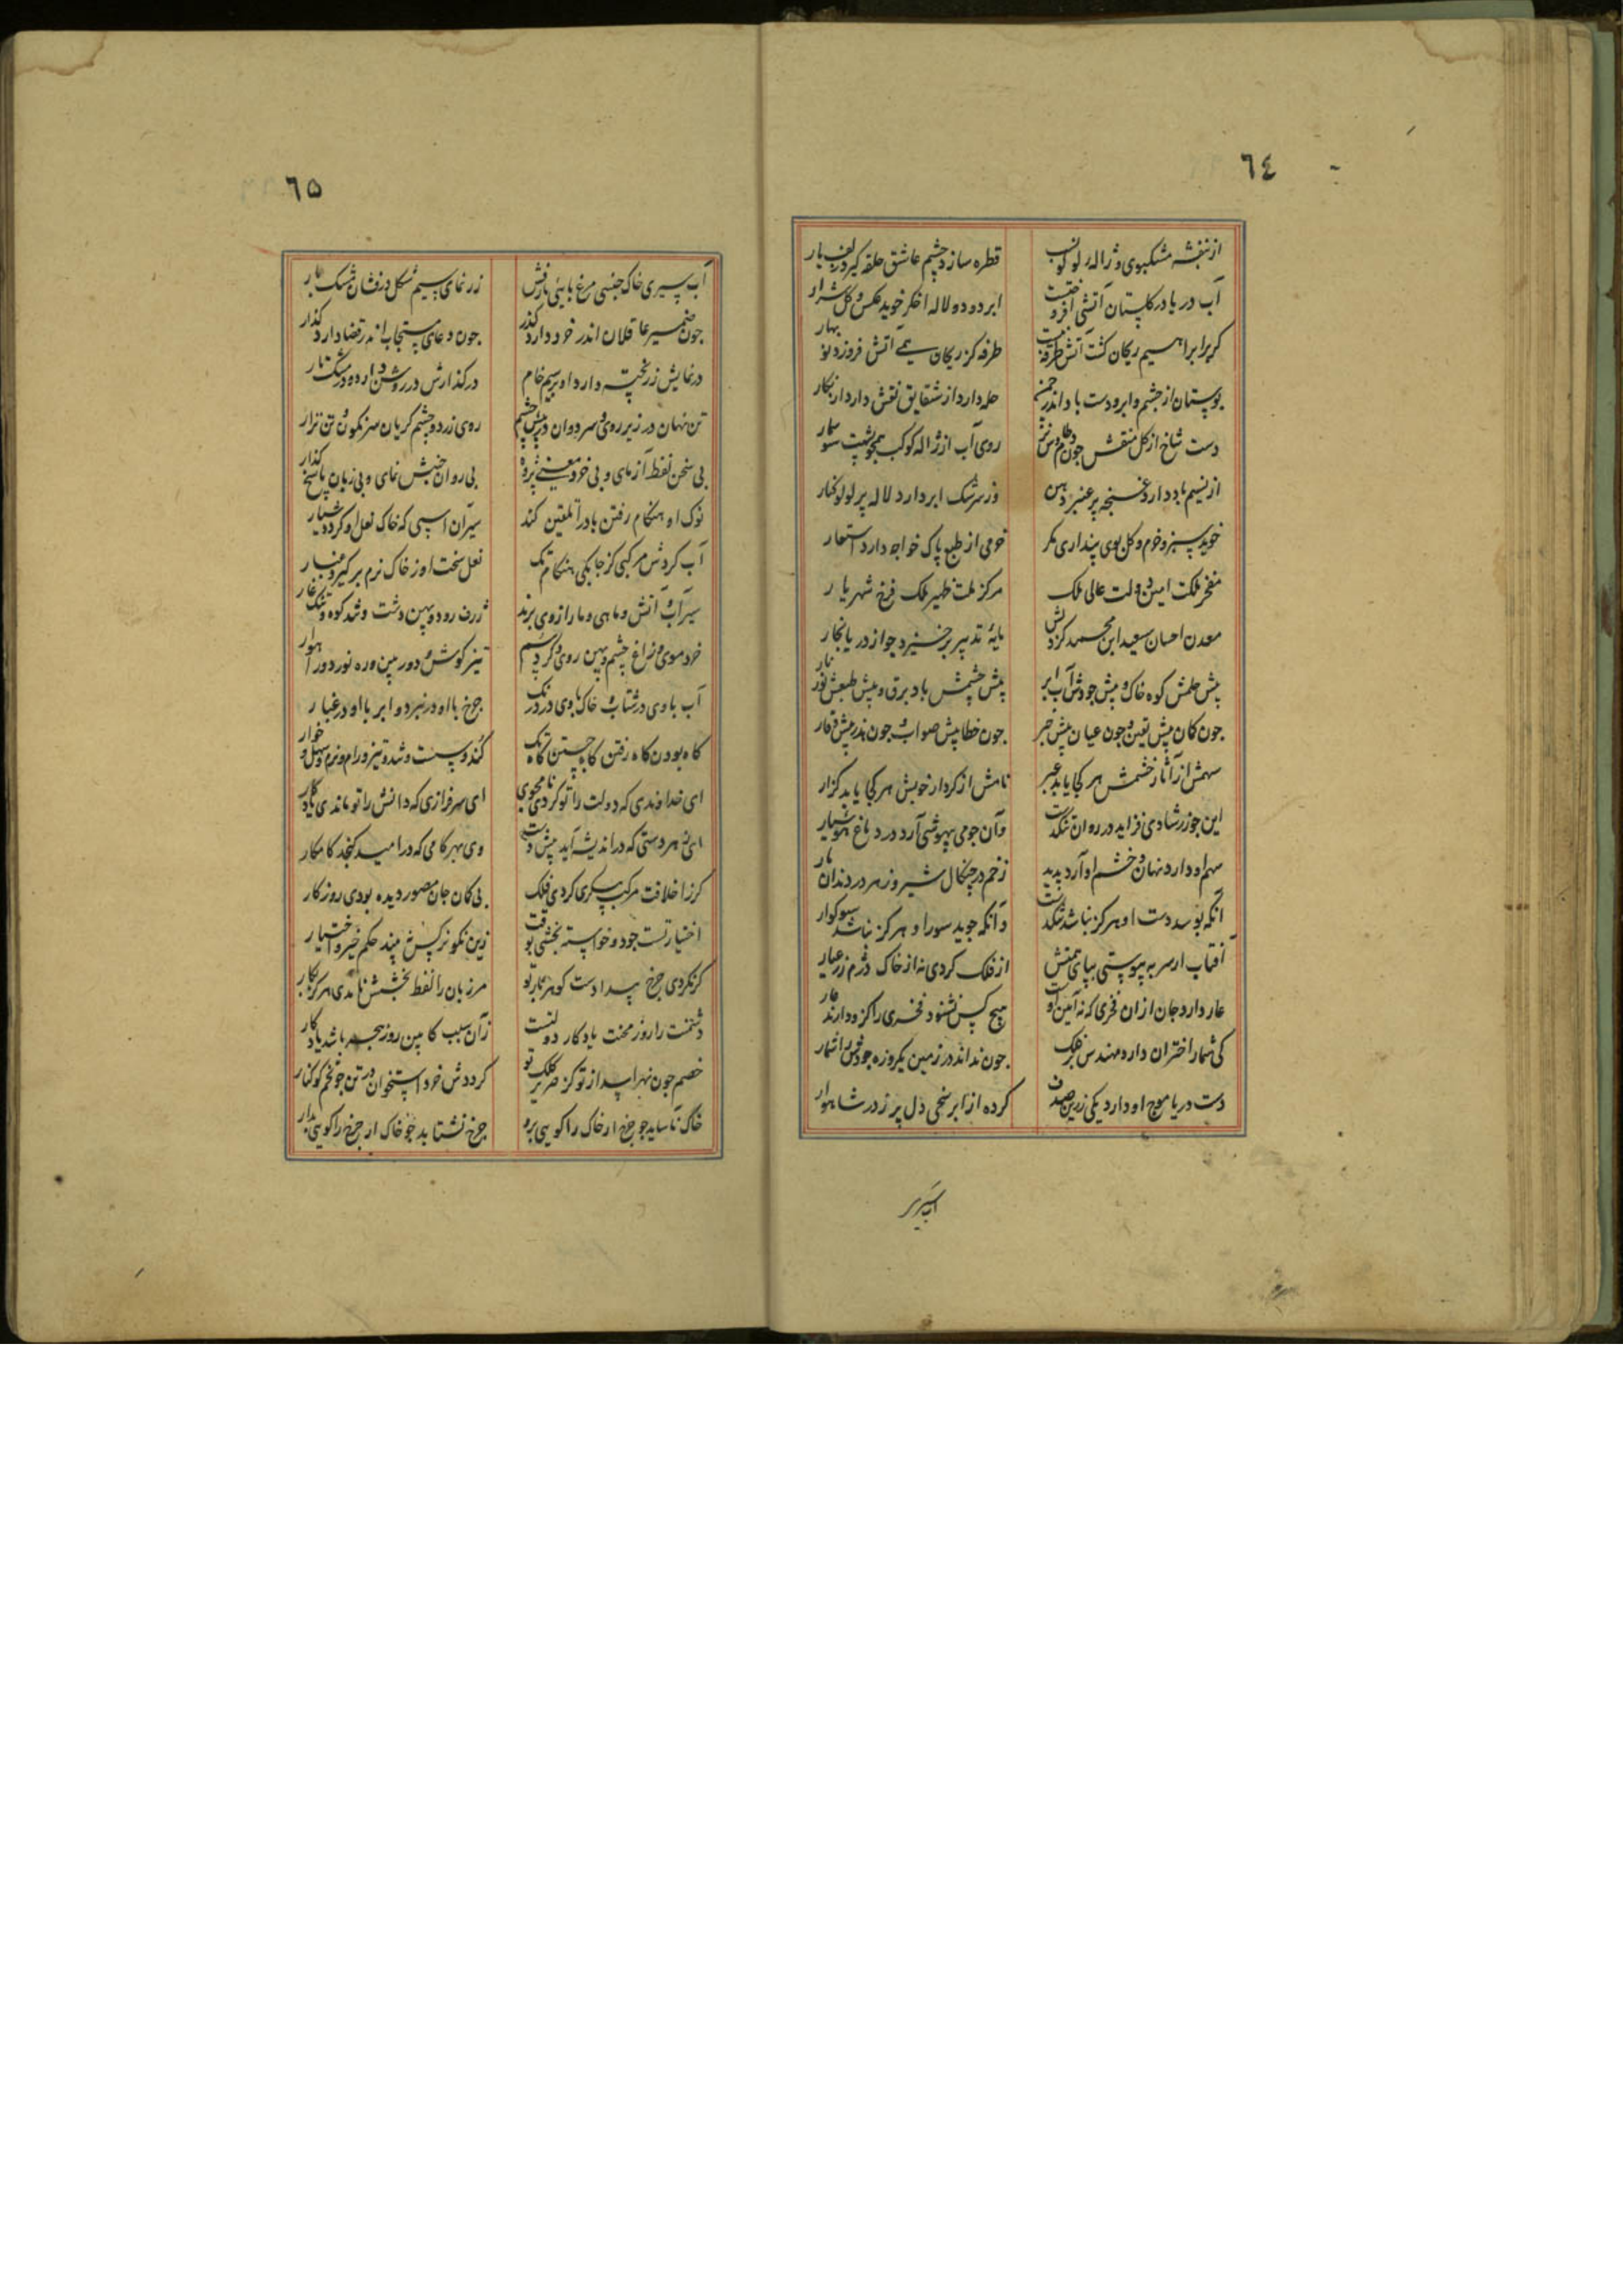 ٦٤
از بنفشه مشکبوی و ژاله لولو نسب قطره سازد چشم عاشق حلقه گیرد زلف یار
آب دریا در گلستان آتشی افروختست ابر دود و لاله اخگر خوید عکس و گل شرار
گر بر ابراهیم ریحان گشت آتش طرفه نیست طرفه کز ریحان همی آتش فروزد نوبهار
بوستان از چشم و ابر و دست باد اندر چمن حله دارد از شقایق نقش دارد از نگار
دست شاخ از گل منقش چون روی آب از ژاله کوکب همچو پشت سوسمار
از نسیم باد دارد غنچه پر عنبر دهن وز سرشک ابر دارد لاله پر لولو کنار
خوید سبز و خرم و گل بوی پنداری مگر خرمی از طبع پاک خواجه دارد استعار
مفخر ملکت امین دولت عالی ملک مرکز ملت ظهیر ملک فرخ شهریار
معدن احسان سعید ابن محمد کز دلش مایهٔ تدبیر برخیزد چو از دریا بخار
پیش حلمش کوه خاک و پیش جودش آب ابر پیش خشمش باد برق و پیش طبعش نور نار
چون گمان پیش یقین و چون عیان پیش خبر چون خطا پیش صواب و چون هذر پیش وقار
سهمش از آثار خشمش هر کجا یابد عبر نامش از کردار خوبش هر کجا یابد گزار
این چو زر شادی فزاید در روان تنگدست وآن چو می بیهوشی آرد در دماغ هوشیار
سهم او دارد نهان و خشم او آرد پدید زخم در چنگال شیر و زهر در دندان مار
آنکه بوسد دست او هرگز نباشد تنگدست وآنکه جوید سور او هرگز نباشد سوکوار
آفتاب ار سر بپیوستی بپای همتش از فلک کردی نه از خاک درم زر عیار
عار دارد جان از آن فخری که نه آیین اوست هیچ کس نشنود فخری را کزو دارند عار
کی شمار اختران دارد مهندس بر فلک چون نداند در زمین یکروزه جودش را شمار
دست دریا موج او دارد یکی زرین صدف کرده از ابر سخی دل پر ز در شاهوار
آب سیر
٦۵
آب سیری خاک جنسی مرغ پایی مار فش زر نمای سیم شکل درفشان مشک بار
چون ضمیر عاقلان اندر خرد دارد گذر چون دعای مستجاب اندر قضا دارد گذار
در نمایش زر پخته دارد او بر سیم خام در گذارش در روشن دارد و در مشک تار
تن نهان در زیر روی و سر دوان در پیش چشم روی زرد و چشم گریان سر نگون و تن نزار
بی سخن نفظ آزمای و بی خرد معنی پژوه بی روان جنبش نمای و بی زبان پاسخ گذار
نوک او هنگام رفتن باد را تلقین کند سیر آن اسپی که خاک نعل او کرده شیار
آب گردش مرکبی کز چابکی هنگام تک نعل سخت او ز خاک نرم بر گیرد غبار
سیر آب و آتش و ماهی و مار از وی برند ژرف رود و پهن دشت و تند کوه و تنگ غار
خرد موی و زاغ چشم و پهن روی و گرد سم تیز گوش و دوربین و ره نورد و راهوار
آب با وی در شتاب و خاک با وی در درنگ چرخ با او در نبرد و ابر با او در غبار
گاه بودن گاه رفتن گاه جستن گاه تک کند و پست و تند و تیز و رام و نرم و سهل و خوار
ای خداوندی که دولت را تو کردی نامجوی ای سرفرازی که دانش را تو ماندی یادگار
ای بهر دستی که در اندیشه آید پیش دست وی بهر کامی که در امید گنجد کامکار
گر ز اخلاقت مرکب پیکری کردی فلک بی گمان جان مصور دیده بودی روزگار
اختیار تست جود و خواسته بخشی بوقت زین نکوتر کس نبیند حکم خیر و اختیار
گر نکردی چرخ پیدا دست گوهر بار تو مر زبان را نفظ بخشش نامدی هرگز بکار
دشمنت را روز محنت یادگار دولتست زان سبب کامین روز هجر باشد یادگار
خصم چون نهراسد از تو کز صریر کلک تو گرددش خرد استخوان در تن چو تخم کوکنار
خاک ناساید چو چرخ ار خاک را گویی برو چرخ نشتابد چو خاک ار چرخ را گویی بدار